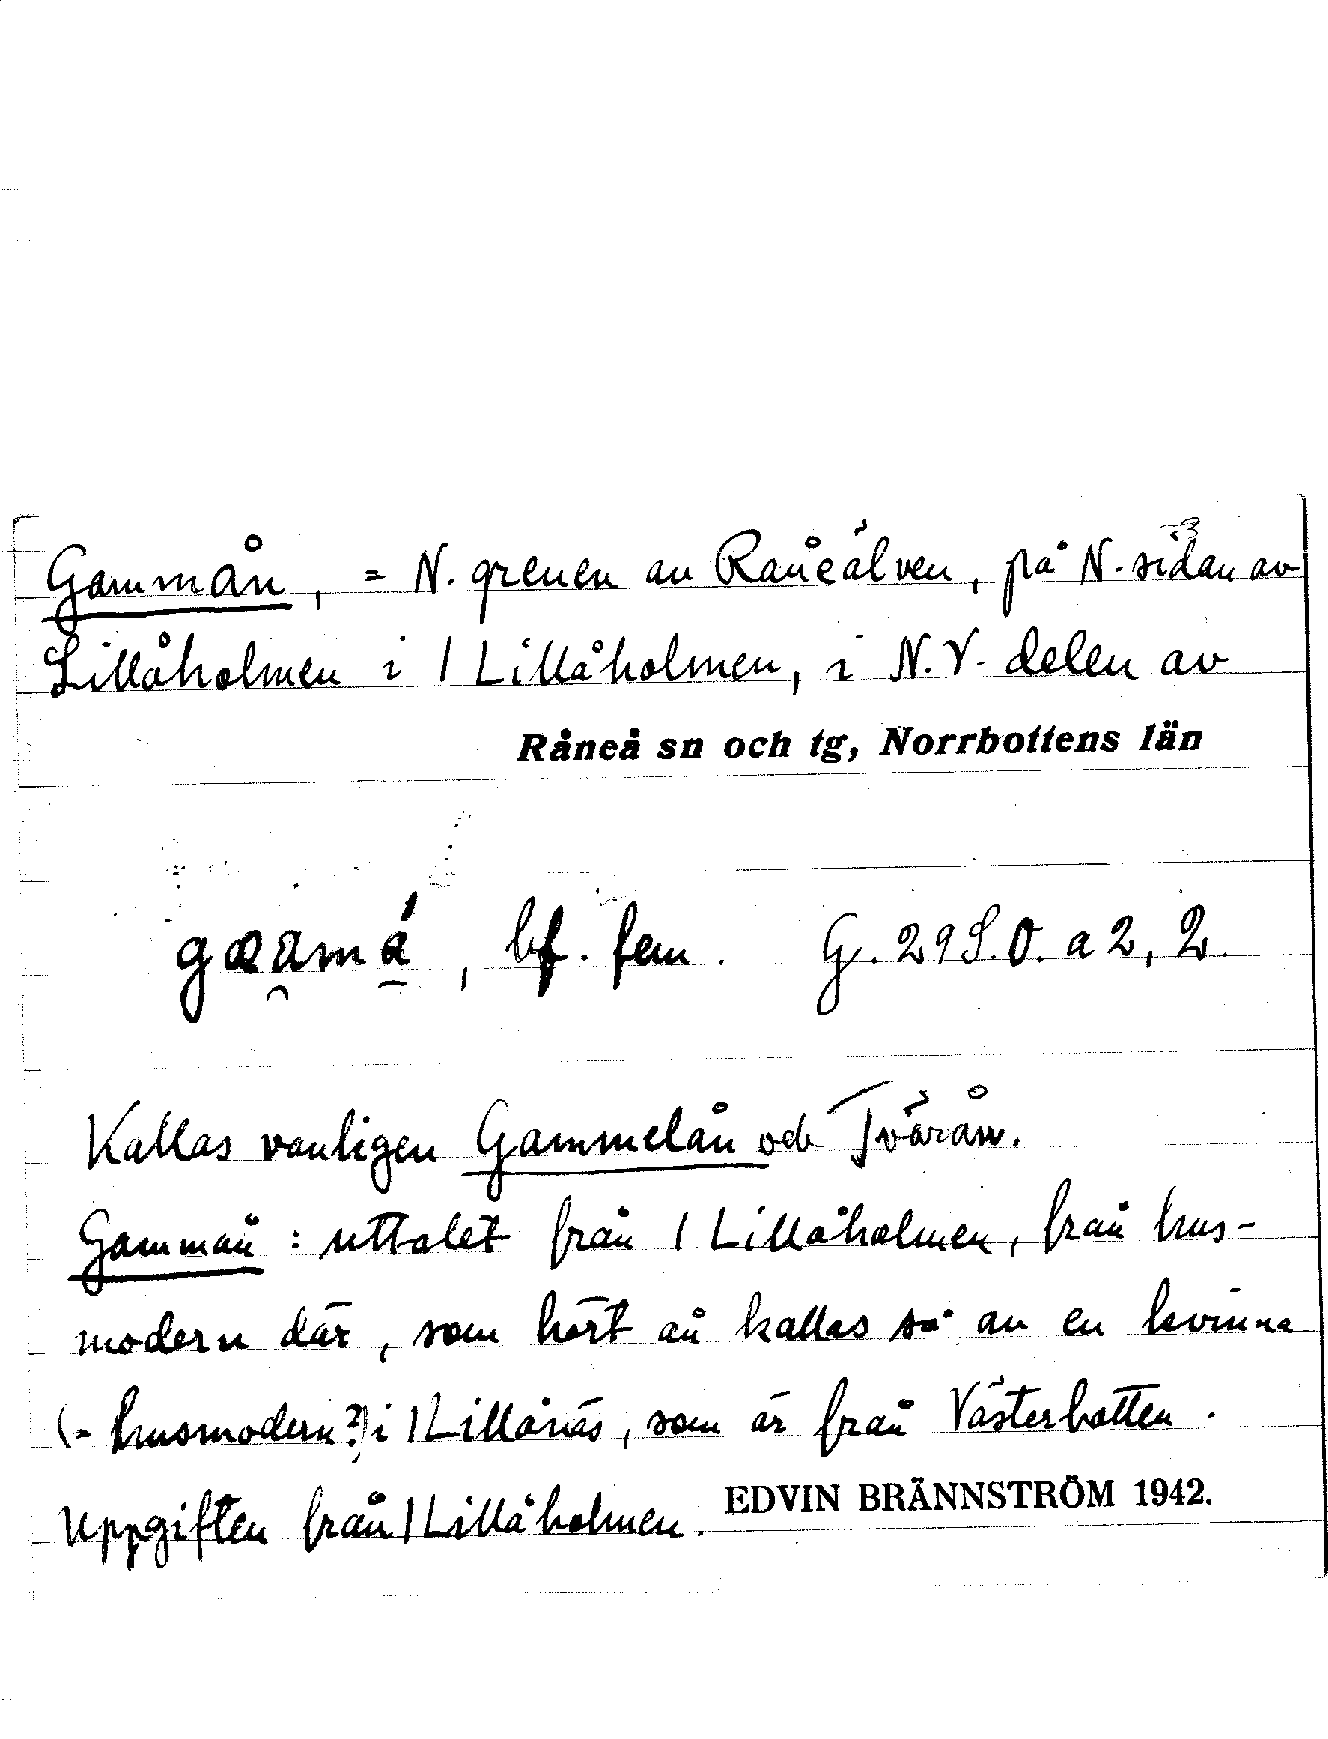 Gammån, = N. grenen av Råneälven, på N. sidan av
Lillåholmen i 1 Lillåholmen, i N.V. delen av
Råneå sn och tg, Norrbottens län
bf. fem. G. 29 S.O. a 2, 2.
Kallas vanligen Gammelån och Tvärån.
Gammån : uttalet från 1 Lillåholmen, från hus-
modern där, som hört ån kallas så av en kvinna
(= husmodern?) i 1 Lillånäs, som är från Västerbotten.
Uppgiften från 1 Lillåholmen. EDVIN BRÄNNSTRÖM 1942.